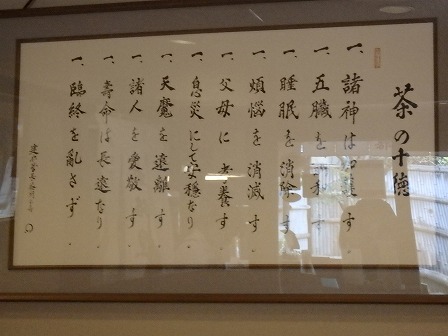 茶の十徳
一、諸神は加護す。
一、五臓を す。
一、睡眠を消除す。
一、煩悩を消滅す。
一、父母に孝養す。
一、息災にして安穏なり。
一、天魔を遠離す。
一、諸人を愛敬す。
一、壽命は長遠なり。
一、臨終を乱さず
建仁